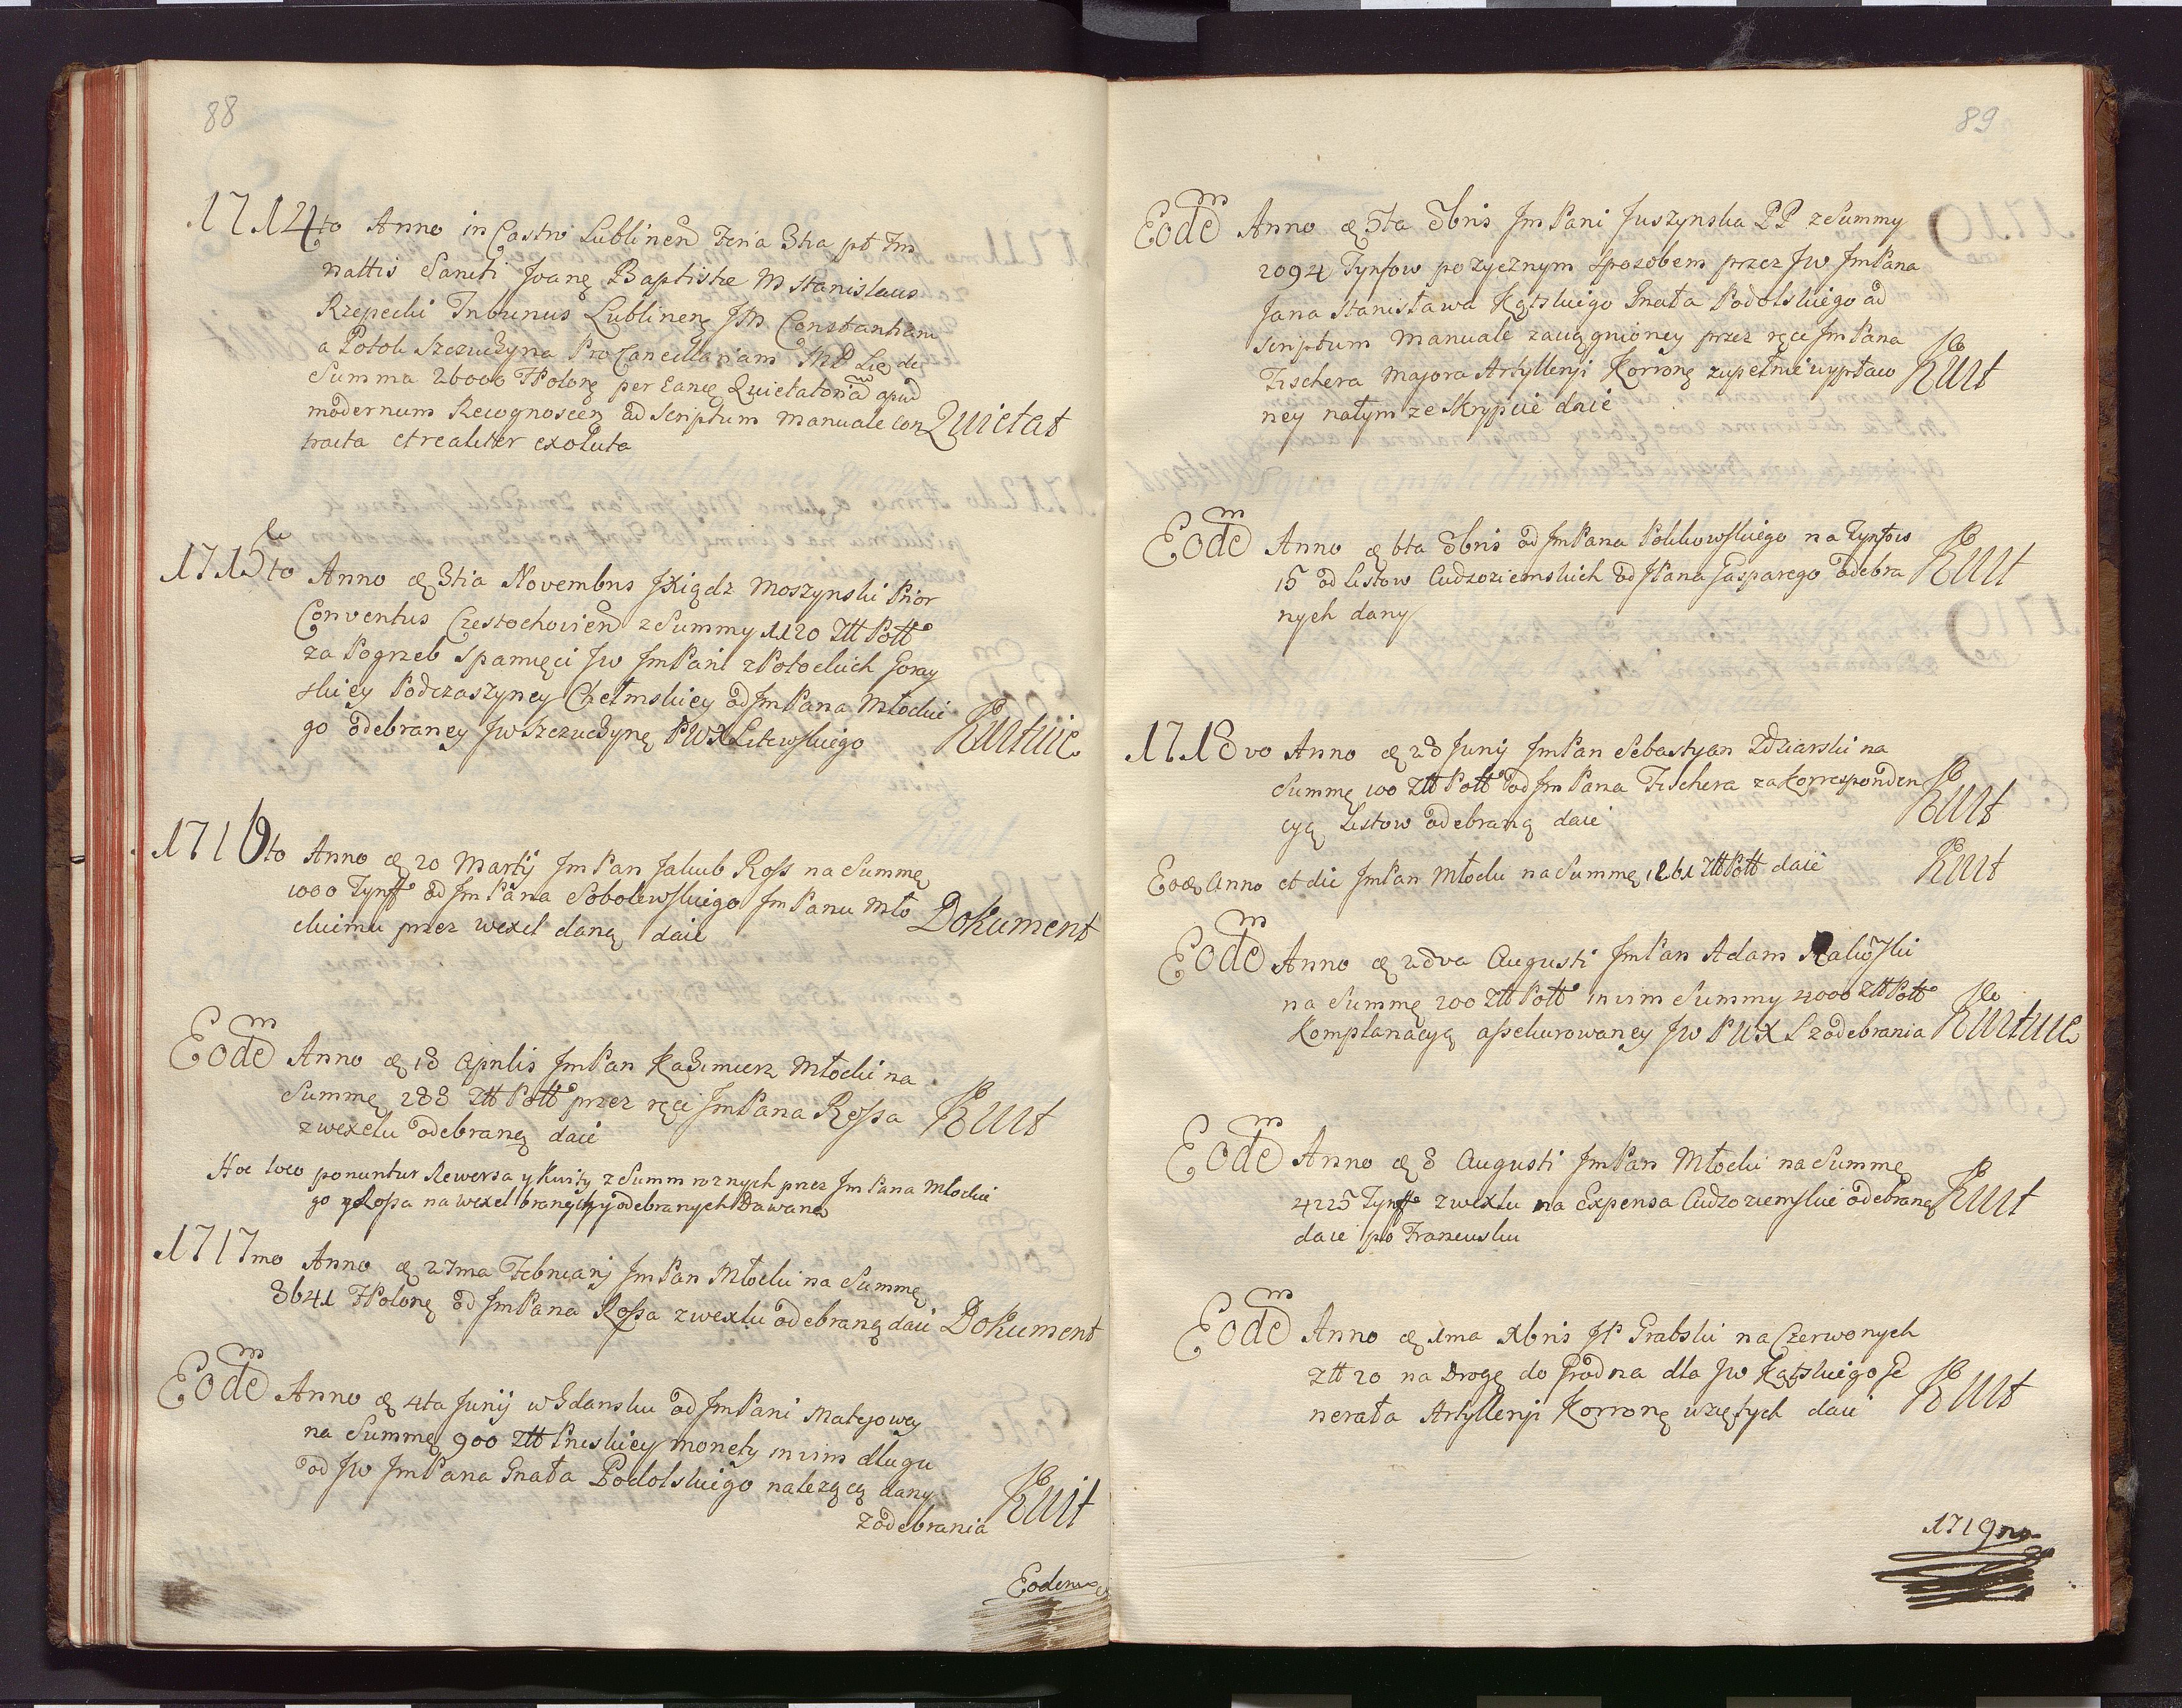 88
1714to Anno in Castro Lublinen Feria 3tia pt Fm
nattis Sancti Joanę Baptistæ M Stanislaus
Rzepecki Tribunus Lublinenę JM Constantiam
a Potok Szczuczyna ProCancellariam MD Lię de
Summa 26000 FPolonę per Eancę Quietatoria apud
modernum Recognoscen ad Scriptum manuale con Quietat
tracta et realiter exoluta
1715to Anno æ 3tia Novembris JXiądz Moszynski Prior
Conventus Częstochovien z Summy 1120 Ztt Polt
za Pogrzeb S pamięci Jw JmPani z Potockich Goray
skiey Podczaszyney Chełmskiey od JmPana Młockie
go odebraney Jw Szczuczynę PWXLitewskiego Kwituie
1716to Anno æ 20 Martij Jm Pan Jakub Ross na Summę
1000 Tynff od Jm Pana Sobolewskiego Jm Panu Mło
ckiemu przez wexel daną daie Dokument
Eode Anno æ 18 Aprilis JmPan Kazimierz Młocki na
Summę 288 Ztt Polt przez ręce JmPana Rossa Kwit
z wexelu odebraną daie
Hoc loco ponuntur Rewersa y Kwity z Summ roznych przez Jm Pana Młockie
go z Rossa na wexel branych y odebranych Dawane
1717mo Anno æ 27ma Februarij JmPan Młocki na Summę
3641 FPolonę od JmPana Rossa z wexlu odebraną daie Dokument
Eode Anno æ 4ta Junij w Gdansku od JmPani Matejowey
na Summę 900 Ztt Pruskiey monety in vim długu
od Jw JmPana Gnała Podolskiego należącą dany Kwit
z odebrania
Eodem
89
Eode Anno æ 5ta 8bris Jm Pani Juszynska PP z Summy
2094 Tynfow pozycznym sposobem przez Jw JmPana
Jana Stanisława Kątskiego Gnała Podolskiego ad
scriptum manuale zaciągnioney przez ręce JmPana
Fischera Majora Artylleryi Koronę zupełnie wypłaco Kwit
ney na tym ze Skrypcie daie
Eode Anno æ 6ta 8bris od JmPana Polikowskiego na Tynfow
15 od Listow Cudzoziemskich od JPana Gasparego odebra Kwit
nych dany
1718vo Anno æ 28 Junij JmPan Sebastyan Zdziarski na
Summę 100 Ztt Polt od JmPana Fischera za Korresponden Kwit
cyą Listow odebraną daie
Eodę Anno et die JmPan Młocki na Summę 1261 Ztt Polt daie Kwit
Eode Anno æ 28va Augusti JmPan Adam
na Summę 200 Ztt Polt in vim Summy 4000 Ztt Polt
Komplanacyą assekurowaney Jw PWXL z odebrania Kwituie
Eode Anno æ 8 Augusti JmPan Młocki na Summę
4225 Tynff z wexlu na Expensa Cudzoziemskie odebraną Kwit
daie po Francusku
Eode Anno æ 1ma Xbris JP Grabski na Czerwonych
Ztt 20 na Drogę do Grodna dla Jw Kątskiego Je
nerała Artylleryi Koronę wziętych daie Kwit
1719no